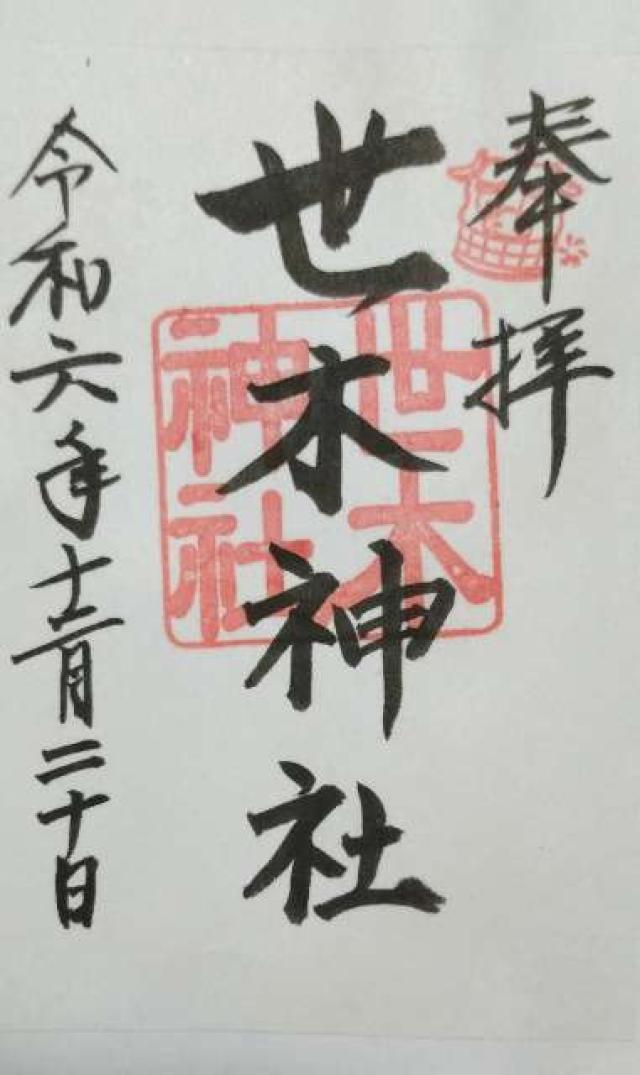 奉拝
世木神社
世木
神社
令和六年十二月二十日